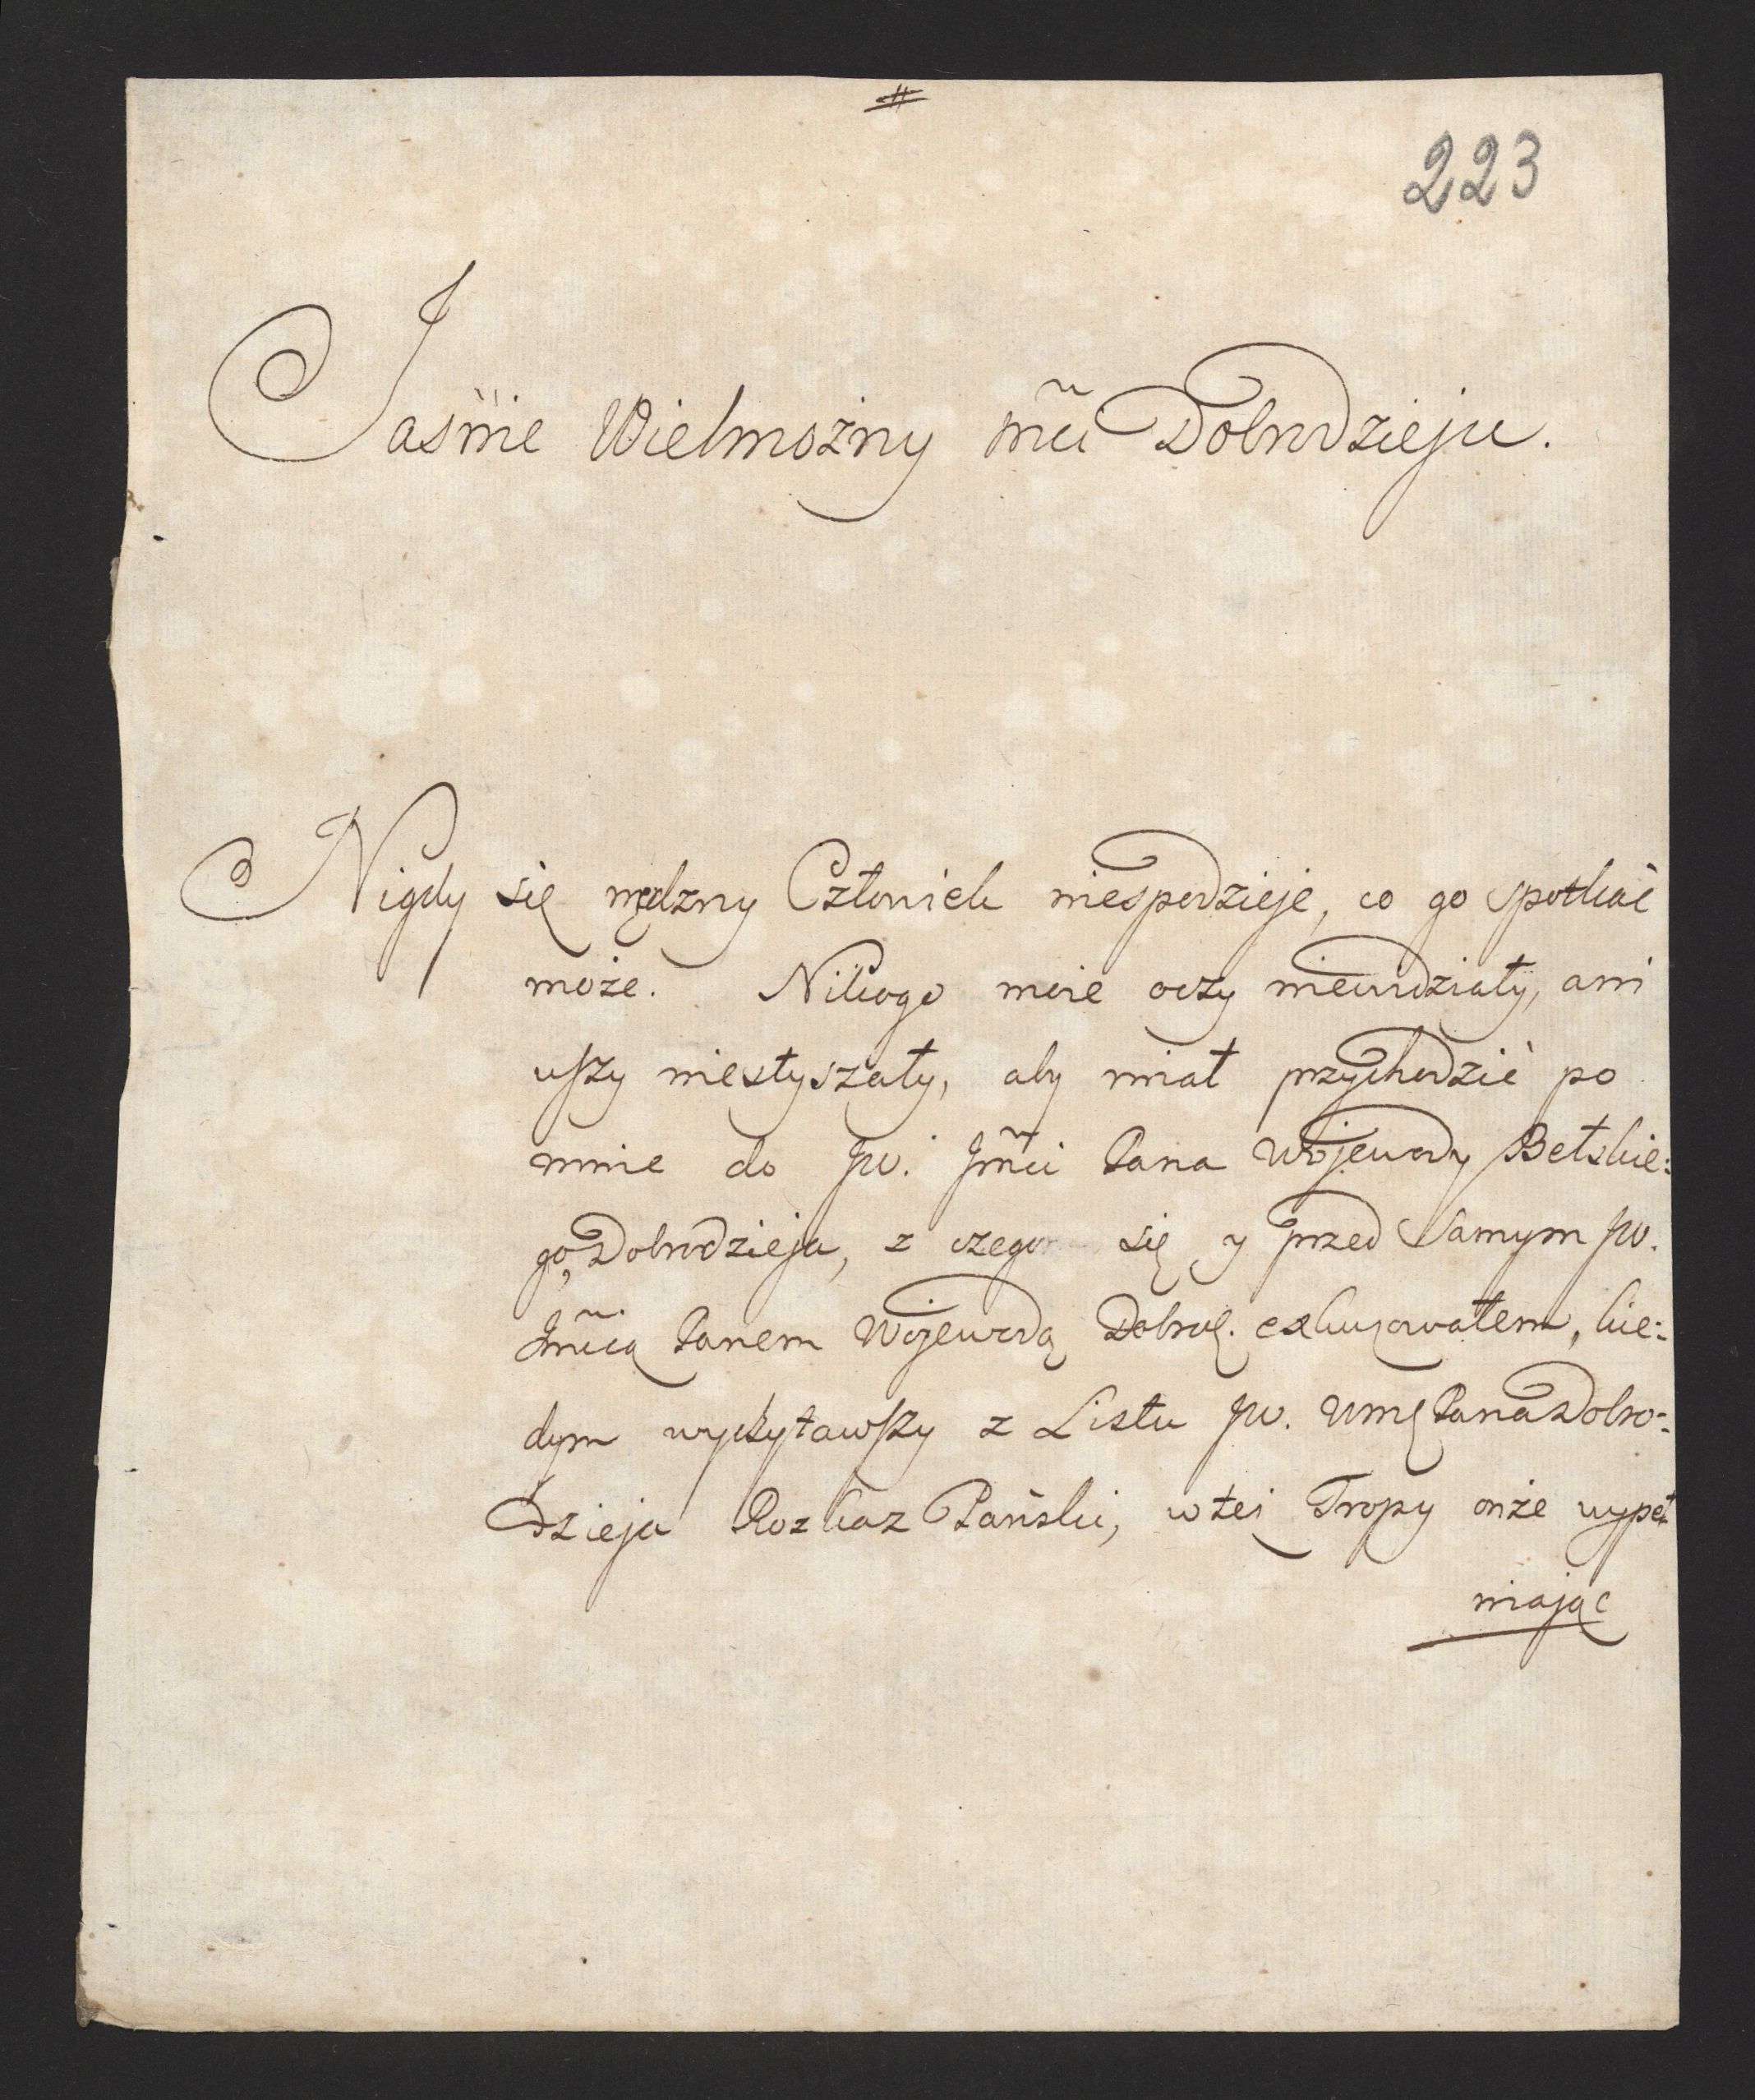 223
Jaśnie Wielmożny mći Dobrodzieju.
Nigdy się nędzny Człowiek niespodzieje, co go spotkać
może. Nikogo moie oczy niewidziały, ani
uszy niesłyszały, aby miał przychodzić po
mnie do Jw. Jmći Pana Wojewody Bełskie:
go, Dobrodzieja, z czego się y przed Samym Jw.
Jmćią Panem Wojewodą Dobrodz. exkuzowałem, kie:
dym wyczytawszy z Listu Jw. Wmę Pana Dobro:
dzieja Rozkaz Pański, w tei Tropy onże wypeł
niając